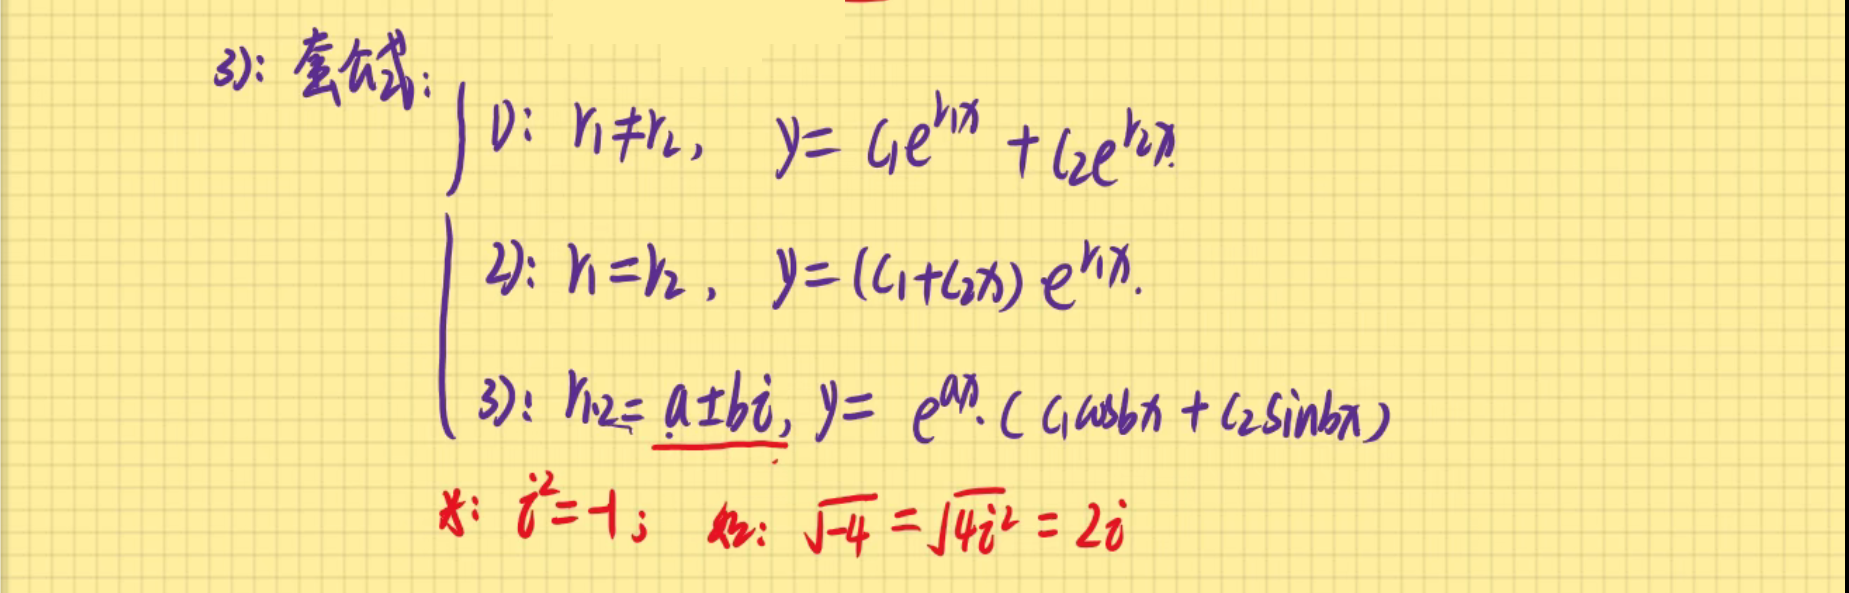 3): 套公式:
1): r₁≠r₂, y= C₁e^{r₁x} + C₂e^{r₂x}.
2): r₁=r₂, y=(C₁+C₂x)·e^{r₁x}.
3): r₁.₂= a±bi, y= e^{ax}·(C₁cosbx + C₂sinbx)
*: i²=-1; 如: √-4 = √4i² = 2i